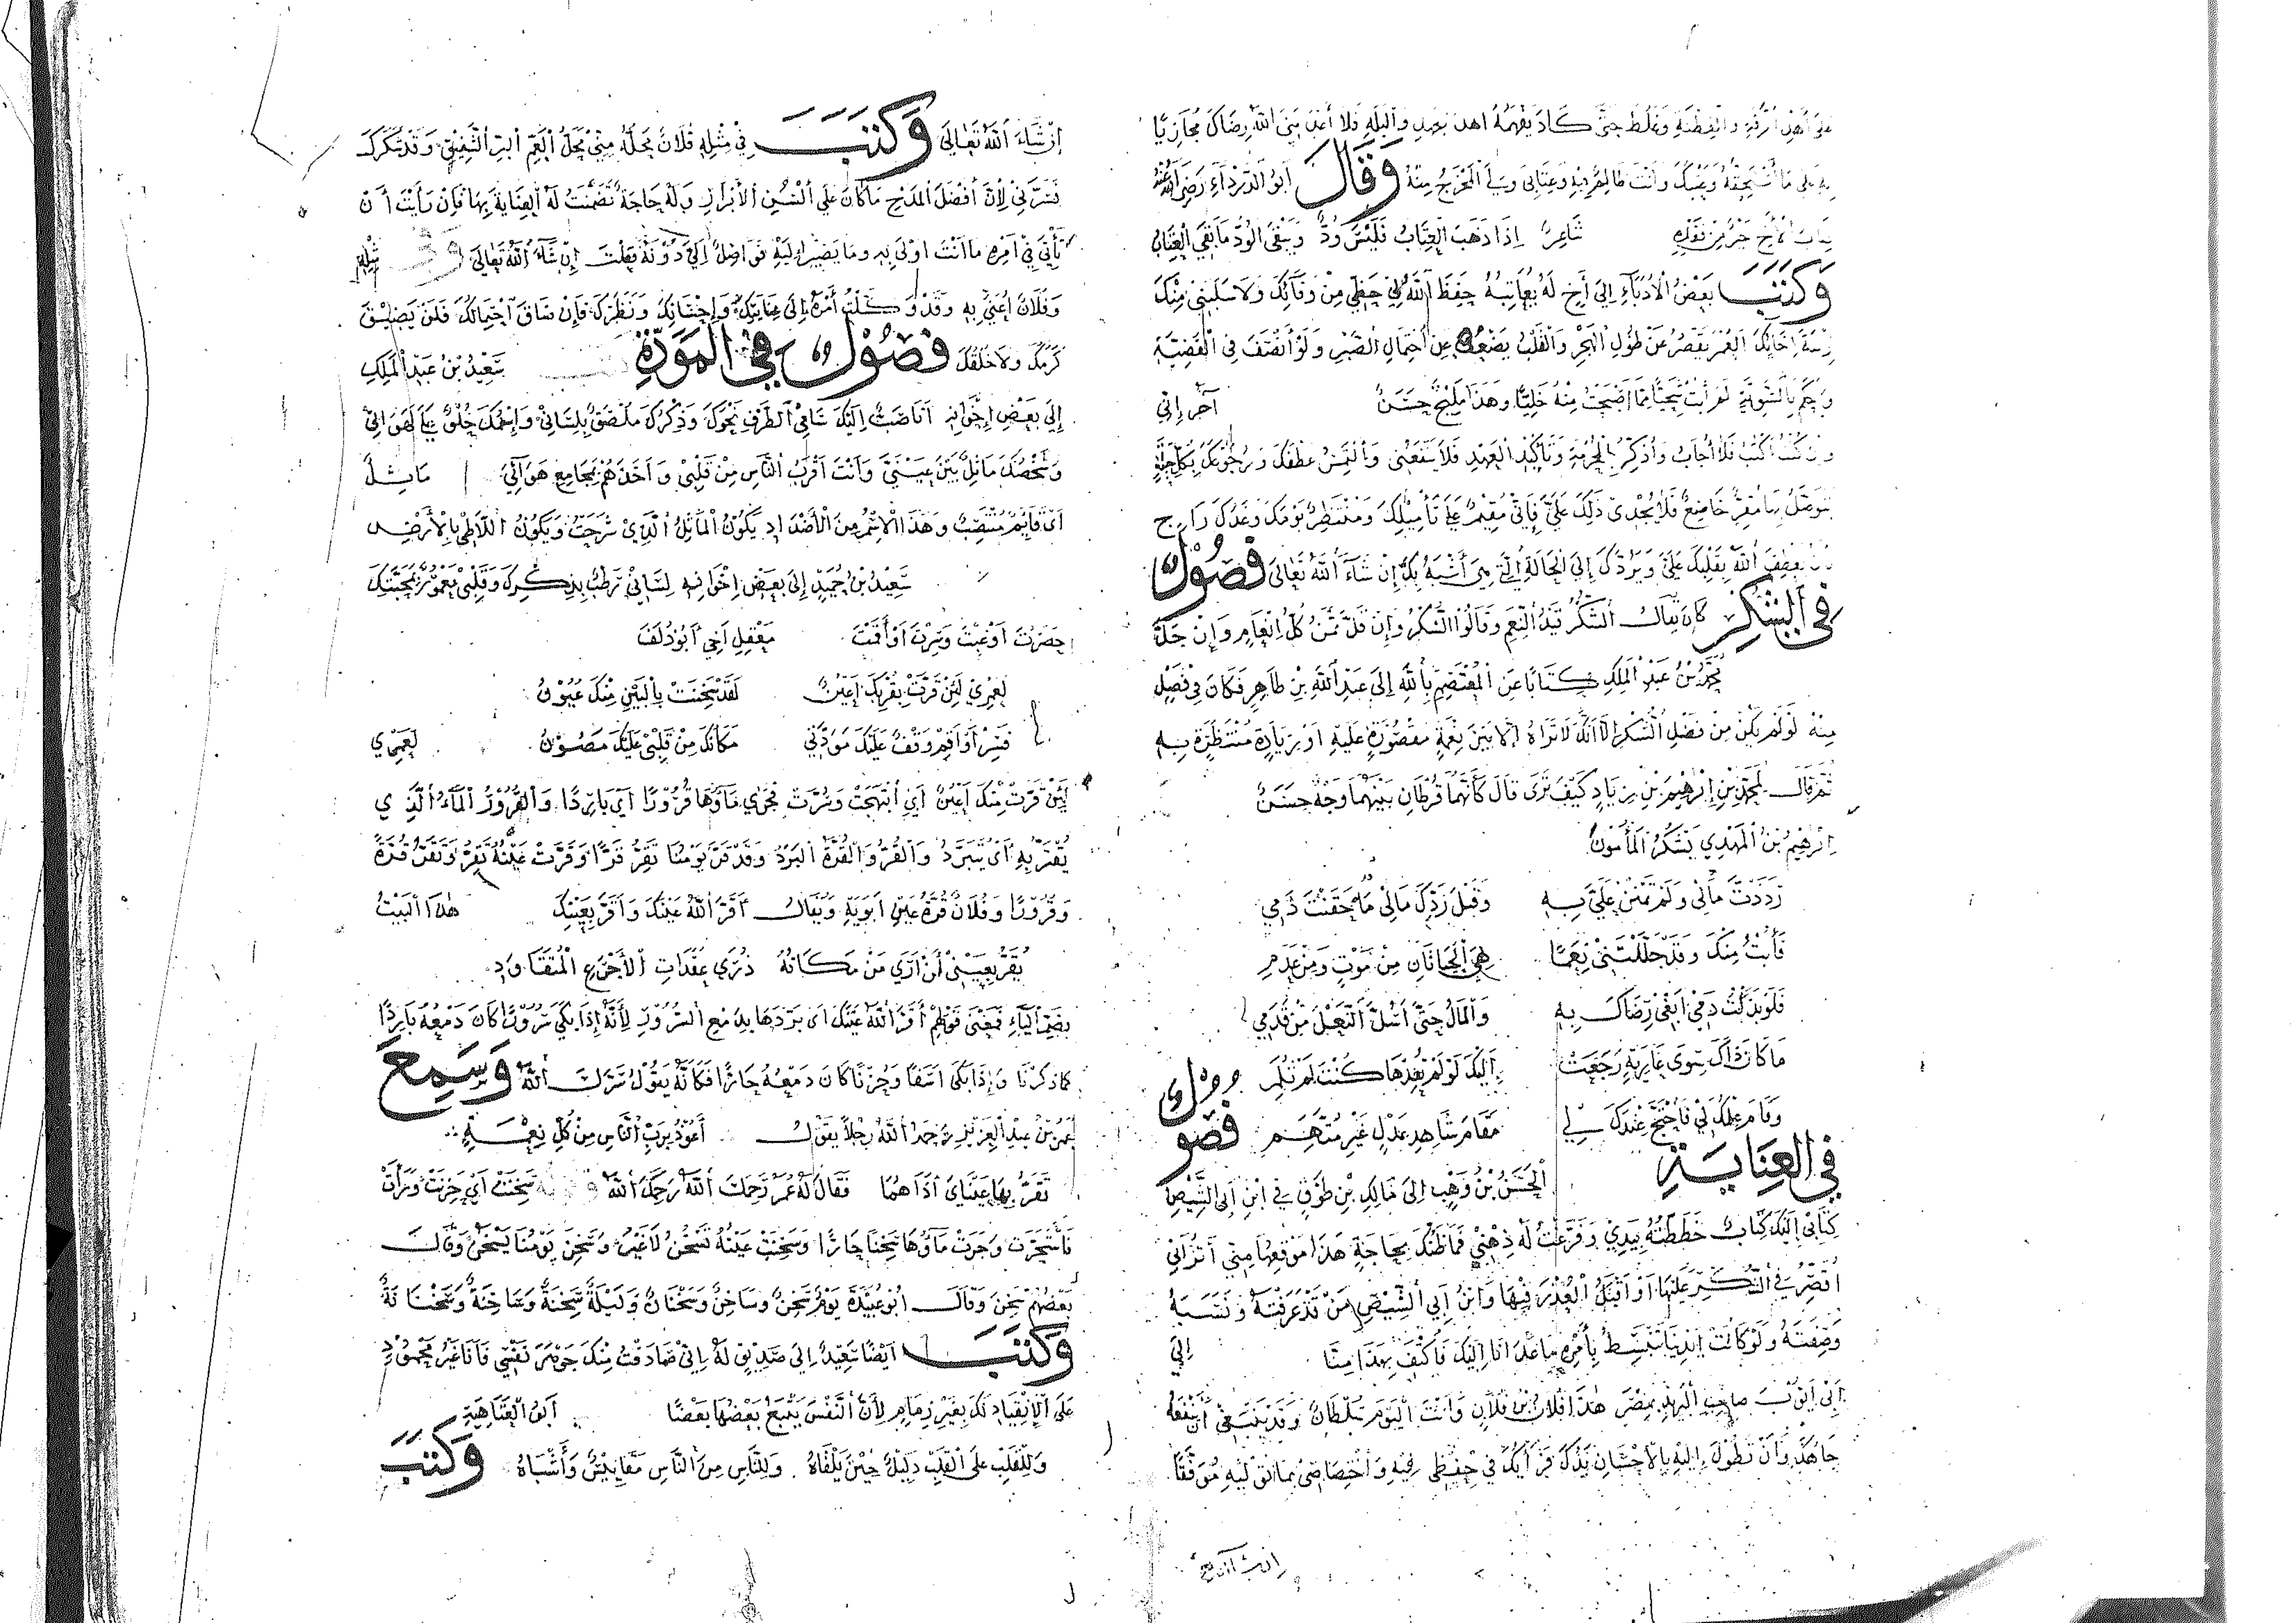 على أهل الرقة والفطنة وغلظ حتى كَادَ يفهمهُ اهل الجهل والبله فلا أعدمني الله رضاك مجازيًا
بهِ على مَا أستحقهُ وَعَتبكَ وأنتَ ظالم فيهِ وعتابى وسلا المخرج منهُ وَقَالَ ابوُ الدَّردَآءِ رَضيَ اللهُ عنهُ
عتاب الأخ خَيْرٌ مِنْ فَقْدِهِ شَاعِرٌ إِذَا ذَهَبَ العِتَابُ فَلَيْسَ وُدٌّ وَيَبْقَى الوُدُّ مَا بَقِيَ العِتَابُ
وَكَتَبَ بَعْضُ الأُدَبَآءِ إِلىَ أَخٍ لَهُ يُعَاتِبُهُ حَفِظَ اللهُ لِي حَظِّي مِنْ وَفَآئِكَ وَلَا سَلَبَنِي مِنْكَ
إِخَائِكَ العُمْرُ يَقْصُرُ عَنْ طُولِ الهَجْرِ وَالقَلْبُ يَضْعُفُ عَنِ احْتِمَالِ الصَّبْرِ وَلَوْ أَنْصَفَ فِي القَضِيَّةِ
وَحَكَمَ بِالسَّوِيَّةِ لَمَرَأَيْتُ شَجِيًّا مِمَّا أَصْبَحْتَ مِنْهُ خَلِيًّا وَهَذَا مَلِيحٌ حَسَنٌ آخَرُ إِنِّي
وَإِنْ كُنْتُ أَكْتُبُ فَلَا أُجَابُ وَأُذَكِّرُ بِالحُرْمَةِ وَتَأْكِيدِ العَهْدِ فَلَا يَنْفَعُنِي وَأَلْتَمِسُ عَطْفَكَ وَرُجُوعَكَ بِكُلِّ حِيلَةٍ
يَتَوَصَّلُ بِهَا مُقِرٌّ خَاضِعٌ فَلَا يُجْدِي ذَلِكَ عَلَيَّ فَإِنِّي مُقِيمٌ عَلَى تَأْمِيلِكَ وَمُنْتَظِرٌ يَوْمَكَ وَغَدَكَ رَاجٍ
أن يَعْطِفَ اللهُ بِقَلْبِكَ عَلَيَّ وَيَرُدَّكَ إِلَى الحَالَةِ الَّتِي هِيَ أَشْبَهُ بِكَ إِنْ شَآءَ اللهُ تَعَالَى فُصُولٌ
فِي الشُّكْرِ كَانَ يُقَالُ الشُّكْرُ قَيْدُ النِّعَمِ وَقَالُوا الشُّكْرُ وَإِنْ قَلَّ ثَمَنُ كُلِّ إِنْعَامٍ وَإِنْ جَلَّ
مُحَمَّدُ بْنُ عَبْدِ المَلِكِ كِتَابًا عَنِ المُعْتَصِمِ بِاللهِ إِلَى عَبْدِ اللهِ بْنِ طَاهِرٍ فَكَانَ فِي فَصْلٍ
مِنْهُ لَوْ لَمْ يَكُنْ مِنْ فَضْلِ الشُّكْرِ إِلَّا أَنَّكَ لَا تَرَاهُ إِلَّا بَيْنَ نِعْمَةٍ مَقْصُورَةٍ عَلَيْهِ أَوْ زِيَادَةٍ مُنْتَظَرَةٍ بِهِ
ثُمَّ قَالَ لِمُحَمَّدِ بْنِ إِبْرَاهِيمَ بْنِ زِيَادٍ كَيْفَ تَرَى قَالَ كَأَنَّهُمَا قُرْطَانِ بَيْنَهُمَا وَجْهٌ حَسَنٌ
إِبْرَهِيمُ بْنُ المَهْدِي يَشْكُرُ المَأْمُونَ
رَدَدْتَ مَالِي وَلَمْ تَمْنُنْ عَلَيَّ بِهِ وَقَبْلَ رَدِّكَ مَالِي مَا حَقَنْتَ دَمِي
فَأُبْتُ مِنْكَ وَقَدْ جَلَّلْتَنِي نِعَمًا هِيَ الحَيَاتَانِ مِنْ مَوْتٍ وَمِنْ عَدَمِ
فَلَوْ بَذَلْتُ دَمِي أَبْغِي رِضَاكَ بِهِ وَالمَالَ حَتَّى أَسُلَّ النَّعْلَ مِنْ قَدَمِي
مَا كَانَ ذَاكَ سِوَى عَارِيَةٍ رَجَعَتْ إِلَيْكَ لَوْ لَمْ تُعِدْهَا كُنْتَ لَمْ تُلَمِ
وَقَامَ عِلْمُكَ بِي فَاحْتَجَّ عِنْدَكَ لِي مَقَامَ شَاهِدِ عَدْلٍ غَيْرِ مُتَّهَمِ فُصُولٌ
فِي العِنَايَةِ الحَسَنُ بْنُ وَهْبٍ إِلَى مَالِكِ بْنِ طَوْقٍ فِي ابْنِ أَبِي الشِّيصِ
كِتَابِي إِلَيْكَ كِتَابٌ خَطَطْتُهُ بِيَدِي وَفَرَّغْتُ لَهُ ذِهْنِي فَمَا ظَنُّكَ بِحَاجَةٍ هَذَا مَوْقِعُهَا مِنِّي أَتُرَانِي
أُقَصِّرُ فِي الشُّكْرِ عَلَيْهَا أَوْ أَقْبَلُ العُذْرَ فِيهَا وَابْنُ أَبِي الشِّيصِ مَنْ قَدْ عَرَفْتَهُ وَنَسَبَهُ
وَصِفَتَهُ وَلَوْ كَانَتْ أَيْدِينَا تَنْبَسِطُ بِأَمْرِهِ مَا عَدَانَا إِلَيْكَ فَاكْتَفِ بِهَذَا مِنَّا إِلَى
أَبِي أَيُّوبَ صَاحِبِ البَرِيدِ بِمِصْرَ هَذَا فُلَانُ بْنُ فُلَانٍ وَأَنْتَ اليَوْمَ سُلْطَانٌ وَقَدْ يَنْبَغِي أَنْ يَنْفَعَهُ
جَاهُكَ وَأَنْ تَطُولَ إِلَيْهِ بِالإِحْسَانِ يَدُكَ فَرَأْيُكَ فِي حِفْظِي فِيهِ وَاخْتِصَاصِي بِمَا تُولِيهِ مُوَفَّقًا
إِنْ شَآءَ اللهُ تَعَالَى وَكَتَبَ فِي مِثْلِهِ فُلَانٌ مَحَلُّهُ مِنِّي مَحَلُّ العَمِّ البَرِّ الشَّفِيقِ وَقَدْ شَكَرَكَ
فَسَرَّنِي لِأَنَّ أَفْضَلَ المَدْحِ مَا كَانَ عَلَى أَلْسُنِ الأَبْرَارِ وَلَهُ حَاجَةٌ تَضَمَّنْتُ لَهُ العِنَايَةَ بِهَا فَإِنْ رَأَيْتَ أَنْ
تَأْتِيَ فِي أَمْرِهِ مَا أَنْتَ أَوْلَى بِهِ وَمَا يَصِيرُ إِلَيْهِ فَوَاصِلٌ إِلَيَّ دُونَهُ فَعَلْتَ إِنْ شَآءَ اللهُ تَعَالَى مِثْلِهِ
وَفُلَانٌ أُعْنَى بِهِ وَقَدْ وَكَلْتُ أَمْرَهُ إِلَى عِنَايَتِكَ وَإِحْسَانِكَ وَنَظَرِكَ فَإِنْ ضَاقَ احْتِمَالُكَ فَلَنْ يَضِيقَ
كَرَمُكَ وَلَا خُلُقُكَ فُصُولٌ فِي المَوَدَّةِ سَعِيدُ بْنُ عَبْدِ المَلِكِ
إِلَى بَعْضِ إِخْوَانِهِ أَنَا صَبٌّ إِلَيْكَ سَامِي الطَّرْفِ نَحْوَكَ وَذِكْرُكَ مُلْصَقٌ بِلِسَانِي وَاسْمُكَ حُلْوٌ عَلَى لَهَوَاتِي
وَشَخْصُكَ مَاثِلٌ بَيْنَ عَيْنَيَّ وَأَنْتَ أَقْرَبُ النَّاسِ مِنْ قَلْبِي وَآخَذُهُمْ بِمَجَامِعِ هَوَآئِي مَاثِلٌ
أَيْ قَائِمٌ مُنْتَصِبٌ وَهَذَا الِاسْمُ مِنَ الأَضْدَادِ يَكُونُ المَاثِلُ الَّذِي شَرَحْتُ وَيَكُونُ اللَّاطِئَ بِالأَرْضِ
سَعِيدُ بْنُ حُمَيْدٍ إِلَى بَعْضِ إِخْوَانِهِ لِسَانِي رَطْبٌ بِذِكْرِكَ وَقَلْبِي مَعْمُورٌ بِمَحَبَّتِكَ
حَضَرْتَ أَوْ غِبْتَ وَسِرْتَ أَوْ أَقَمْتَ مَعْقِلٌ أَخِي أَبُو دُلَفَ
لَعَمْرِي لَئِنْ قَرَّتْ بِقُرْبِكَ أَعْيُنٌ لَقَدْ سَخِنَتْ بِالبَيْنِ مِنْكَ عُيُونُ
فَسِرْ أَوْ أَقِمْ وَقْفٌ عَلَيْكَ مَوَدَّتِي مَكَانُكَ مِنْ قَلْبِي عَلَيْكَ مَصُونُ لَعَمْرِي
لَئِنْ قَرَّتْ مِنْكَ أَعْيُنٌ أَيِ ابْتَهَجَتْ وَسُرَّتْ فَجَرَى مَآؤُهَا قُرُورًا أَيْ بَارِدًا وَالقُرُورُ المَآءُ الَّذِي
يُقْتَرُّ بِهِ أَيْ يُتَبَرَّدُ وَالقُرُّ وَالقُرَّةُ البَرْدُ وَقَدْ قَرَّ يَوْمُنَا يَقَرُّ قَرًّا وَقَرَّتْ عَيْنُهُ تَقِرُّ وَتَقَرُّ قُرَّةً
وَقُرُورًا وَفُلَانٌ قُرَّةُ عَيْنِ أَبَوَيْهِ وَيُقَالُ أَقَرَّ اللهُ عَيْنَكَ وَأَقَرَّ بِعَيْنِكَ هَذَا البَيْتُ
يُقَرُّ بِعَيْنِي أَنْ أَرَى مَنْ مَكَانُهُ ذُرَى عَقَدَاتِ الأَجْرَعِ المُتَقَاوِدِ
بِضَمِّ اليَآءِ فَمَعْنَى قَوْلِهِمْ أَقَرَّ اللهُ عَيْنَكَ أَيْ بَرَّدَهَا بِدَمْعِ السُّرُورِ لِأَنَّهُ إِذَا بَكَى سُرُورًا كَانَ دَمْعُهُ بَارِدًا
كَمَا ذَكَرْنَا وَإِذَا بَكَى أَسَفًا وَحُزْنًا كَانَ دَمْعُهُ حَارًّا فَكَأَنَّهُ يَقُولُ سَرَّكَ اللهُ وَسَمِعَ
عُمَرُ بْنُ عَبْدِ العَزِيزِ رَحِمَهُ اللهُ رَجُلًا يَقُولُ أَعُوذُ بِرَبِّ النَّاسِ مِنْ كُلِّ نِعْمَةٍ
تَقَرُّ بِهَا عَيْنَايَ فَقَالَ لَهُ عُمَرُ رَحِمَكَ اللهُ رَحِمَكَ اللهُ سَخِنَتْ أَيْ حَزِنَتْ
وَجَرَتْ مَآؤُهَا سُخْنًا حَارًّا وَسَخِنَتْ عَيْنُهُ تَسْخَنُ لَا غَيْرُ وَسَخَنَ يَوْمُنَا يَسْخُنُ وَقَالَ
بَعْضُهُمْ سَخُنَ وَقَالَ أَبُو عُبَيْدَةَ يَوْمٌ سُخْنٌ وَسَاخِنٌ وَسَخْنَانٌ وَلَيْلَةٌ سُخْنَةٌ وَسَاخِنَةٌ وَسَخْنَانَةٌ
وَكَتَبَ أَيْضًا سَعِيدٌ إِلَى صَدِيقٍ لَهُ إِنِّي صَادَفْتُ مِنْكَ جَوْهَرَ نَفْسِي فَأَنَا غَيْرُ مَحْمُودٍ
عَلَى الِانْقِيَادِ لَكَ بِغَيْرِ زِمَامٍ لِأَنَّ النَّفْسَ يَتْبَعُ بَعْضُهَا بَعْضًا أَبُو العَتَاهِيَةِ
وَلِلْقَلْبِ عَلَى القَلْبِ دَلِيلٌ حِينَ يَلْقَاهُ وَلِلنَّاسِ مِنَ النَّاسِ مَقَايِيسٌ وَأَشْبَاهُ وَكَتَبَ